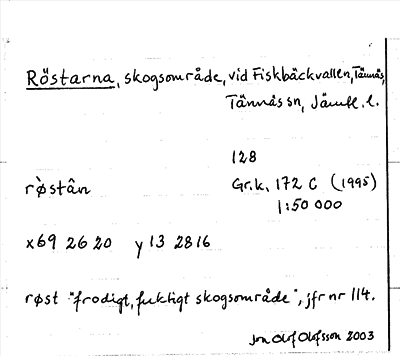 Röstarna, skogsområde, vid Fiskbäckvallen, Tännäs,
Tännäs sn, Jämtl. l.
128
røstân̂ Gr.k. 172 C (1995)
1:50 000
x69 26 20 y 13 28 16
røst "frodigt, fuktigt skogsområde", jfr nr 114.
Jon Olof Olofsson 2003